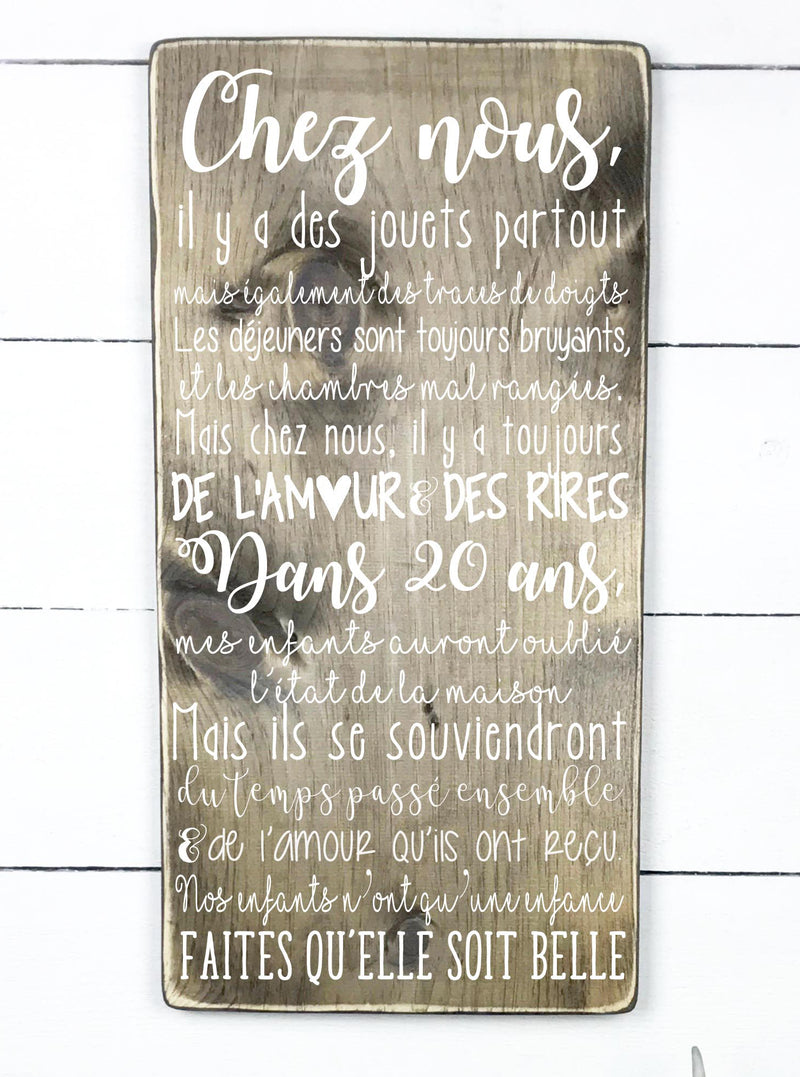 Chez nous,
il y a des jouets partout
mais également des traces de doigts.
Les déjeuners sont toujours bruyants,
et les chambres mal rangées.
Mais chez nous, il y a toujours
DE L'AM♥UR & DES RIRES
Dans 20 ans,
mes enfants auront oublié
l'état de la maison
Mais ils se souviendront
du temps passé ensemble
& de l'amour qu'ils ont reçu.
Nos enfants n'ont qu'une enfance
FAITES QU'ELLE SOIT BELLE